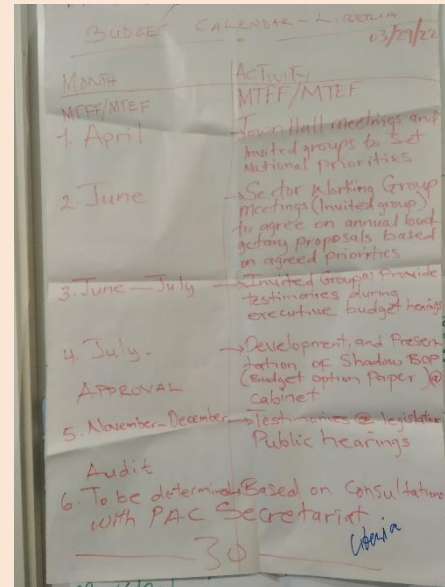 BUDGET CALENDAR - LIBERIA
03/29/22
MONTH
ACTIVITY
MTFF/MTEF
MTFF/MTEF
1. April
→Town Hall meetings and
Invited groups to set
National priorities
2. June
→Sector Working Group
meetings (Invited group)
to agree on annual bud-
getary proposals based
on agreed priorities
3. June - July
→Invited Groups Provide
testimonies during
executive budget hearings
4. July.
→Development, and Presen-
tation of Shadow BOP
(Budget option Paper) @
Cabinet
APPROVAL
5. November-December
→Testimonies @ legislative
Public hearings
Audit
6. To be determined
→Based on Consultations
with PAC Secretariat
30
Liberia